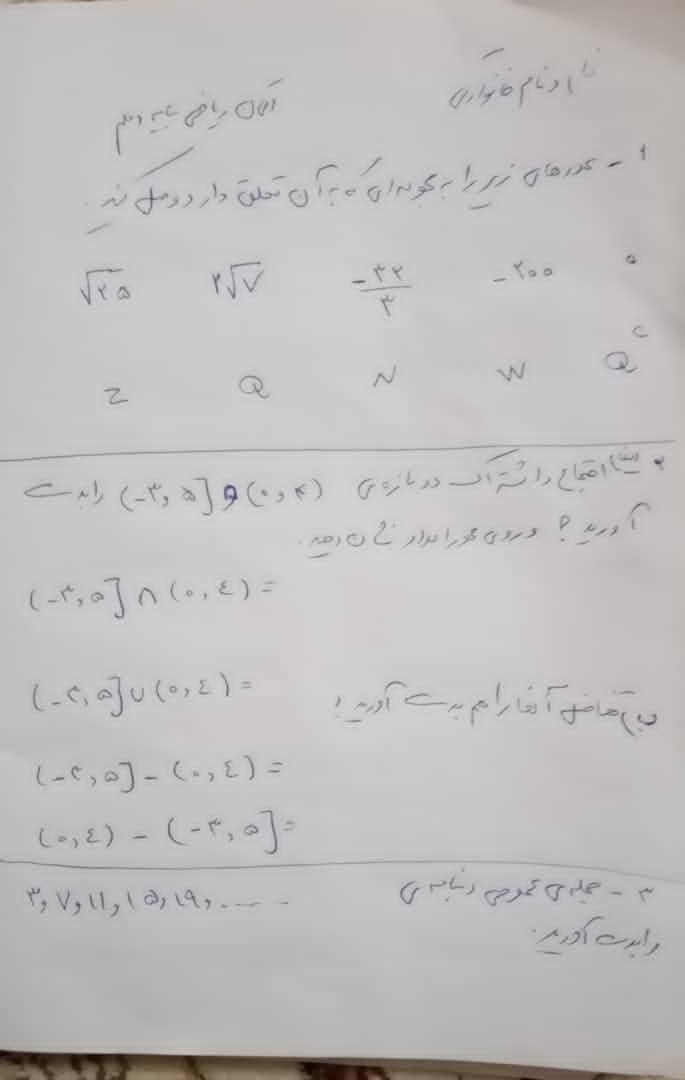 نام و نام خانوادگی
ریاضی پایه دهم
۱- عددهای زیر را به گونه‌ای که به آن تعلق دارد وصل کنید.
√۲۵ ۲√۷ -۳۲/۳ -۲۰۰ ۰
Z Q N W Qᶜ
۲ الف) اجتماع و اشتراک دو بازه‌ی (۰,۴) و [-۳,۵) را بدست
آورید؟ و روی محور اعداد نشان دهید.
(-۳,۵] ∩ (۰,٤) =
(-۳,۵] ∪ (۰,٤) =
ب) تفاضل آنها را هم بدست آورید!
(-۳,۵] - (۰,٤) =
(۰,٤) - (-۳,۵] =
۳- جمله‌ی عمومی دنباله‌ی ۳,۷,۱۱,۱۵,۱۹,.....
را بدست آورید.